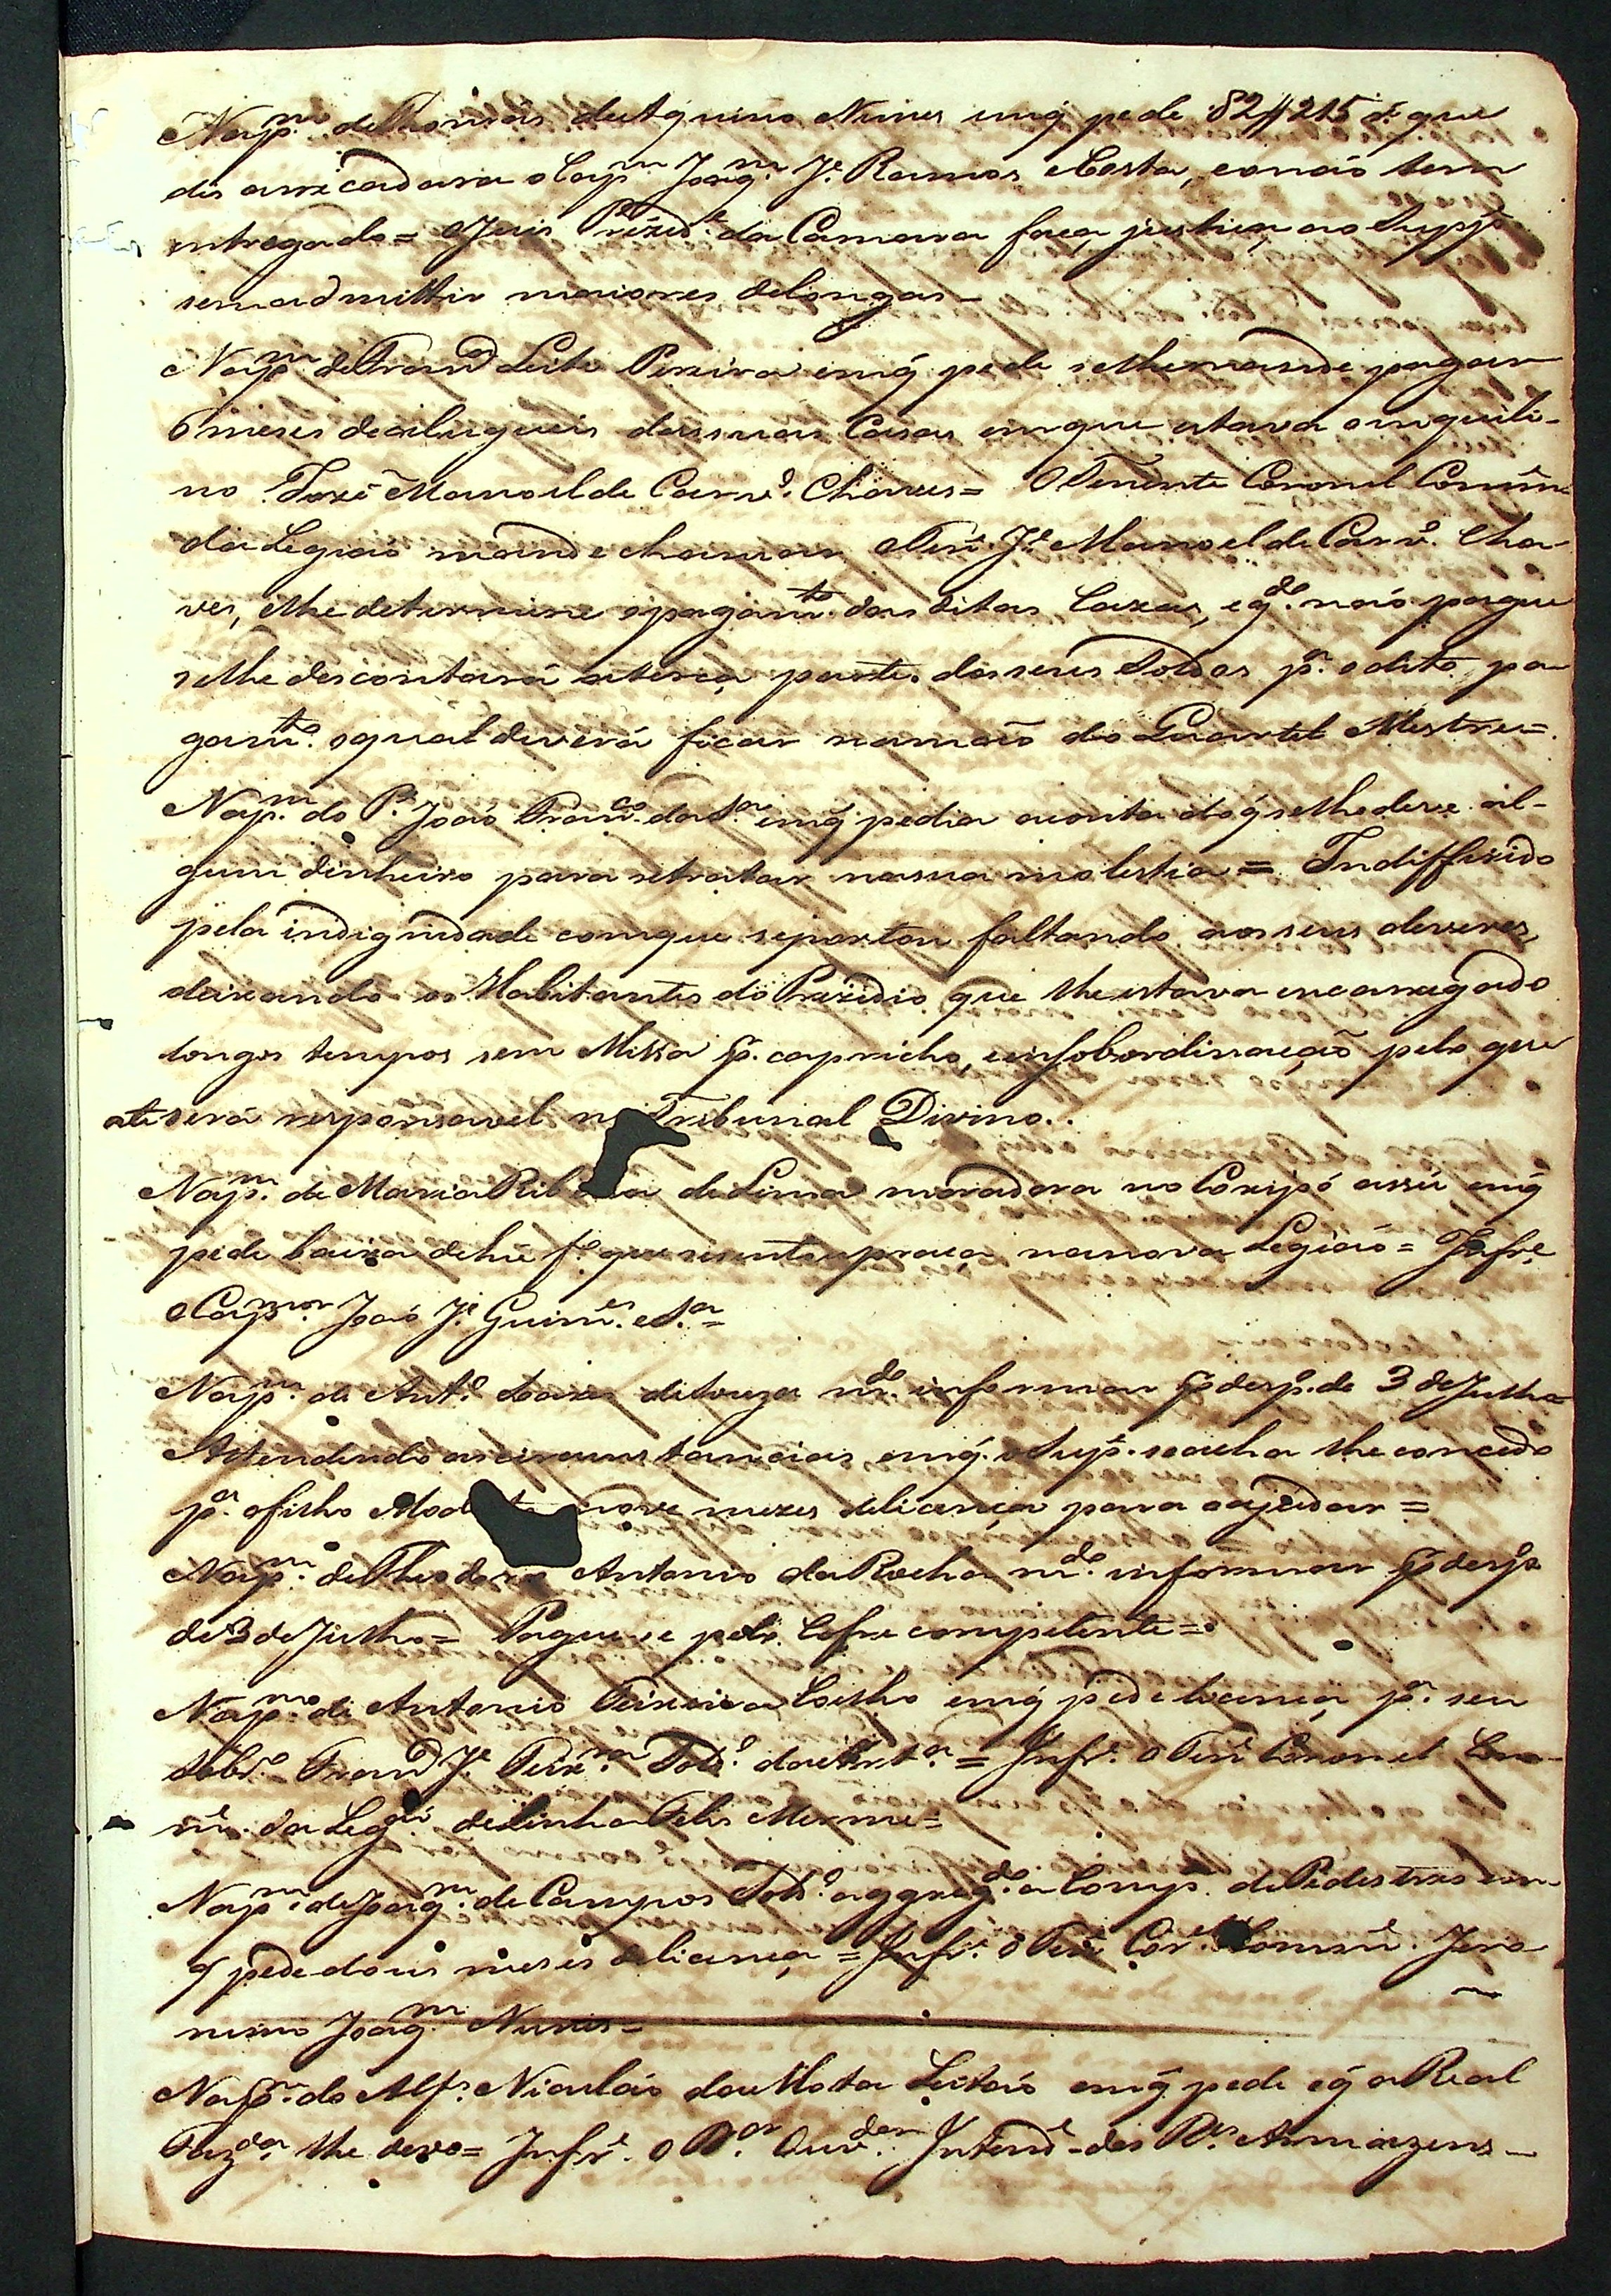 Nap.m de Thomás de Aquino Nunes emq̃ pede 824215 rs̃ que
dis arrecadara o Cap.m Joaq.m J.e Ramos e Costa, e onaõ tem
entregado = O Juis Prezid.e da Camara faça justiça ao Supp.e
sem admittir maiores delongas =
Nap.m de Fran.co Leite Pereira emq̃ pede se lhe mande pagar
6 meses de alugueis das suas Casas em que estava o inquili-
no José Manoel de Carv.o Chaves = O Tenente Coronel Comm.e
da Legiaõ mande chamar o Ten.e J.e Manoel de Carv.o Cha-
ves, e lhe determine o pagam.to das ditas Cazas, e q.do naõ pague
se lhe descontará a terça parte dos seus Soldos p.a o dito pa
gam.to o qual deverá ficar na maõ do Quartel Mestre =
Nap.m do P.e Joaõ Fran.co da S.a emq̃ pedia a conta do q̃ se lhe deve al-
gum dinheiro para se tratar na sua molestia = Indifferido
pela indignidade com que se portou faltando aos seus deveres,
deixando os Habitantes do Prezidio que lhe estava encarregado
longos tempos sem Missa p.r capricho, e insobordinaçaõ pelo que
até será responsavel no Tribunal Divino..
Nap.m de Maria Ribeira de Lima moradora no Coxipó assú emq̃
pede baixa de hũ f.o que se sentou praça na nova Legiaõ = Inf.e
o Cap.m mor Joaõ J.e Guim.es e S.a =
Nap.m de Ant.o Soares de Souza m.do informar p.r desp.o de 3 de Julho
Attendendo as circunstancias, emq̃ o Sup.e se acha lhe concedo
p.a o filho nove mezes de licença para o ajudar =
Nap.m de Theodoro Antonio da Rocha m.do informar p.r desp.o
de 3 de Julho = Pague-se pelo Cofre competente =
Nap.m de Antonio Teixeira Coelho emq̃ pede licença p.a seu
sobr.o Fran.co J.e Teix.ra Sold.o = Inf.e o Ten.e Coronel Com-
m.e da Leg.aõ de linha Felis Merme =
Nap.m de Joaq.m de Campos Sold.o aggreg.do a Comp.a de Pedestres em
q̃ pede dous meses de licença = Inf.e o Ten.e Cor.el Comm.e Jero
nimo Joaq.m Nunes =
Nap.m do Alf.s Nicoláo da Motta Leitaõ emq̃ pede oq̃ a Real
Faz.da lhe deve = Inf.e o D.or Ouv.dor Intend.e dos R.es Armazens =